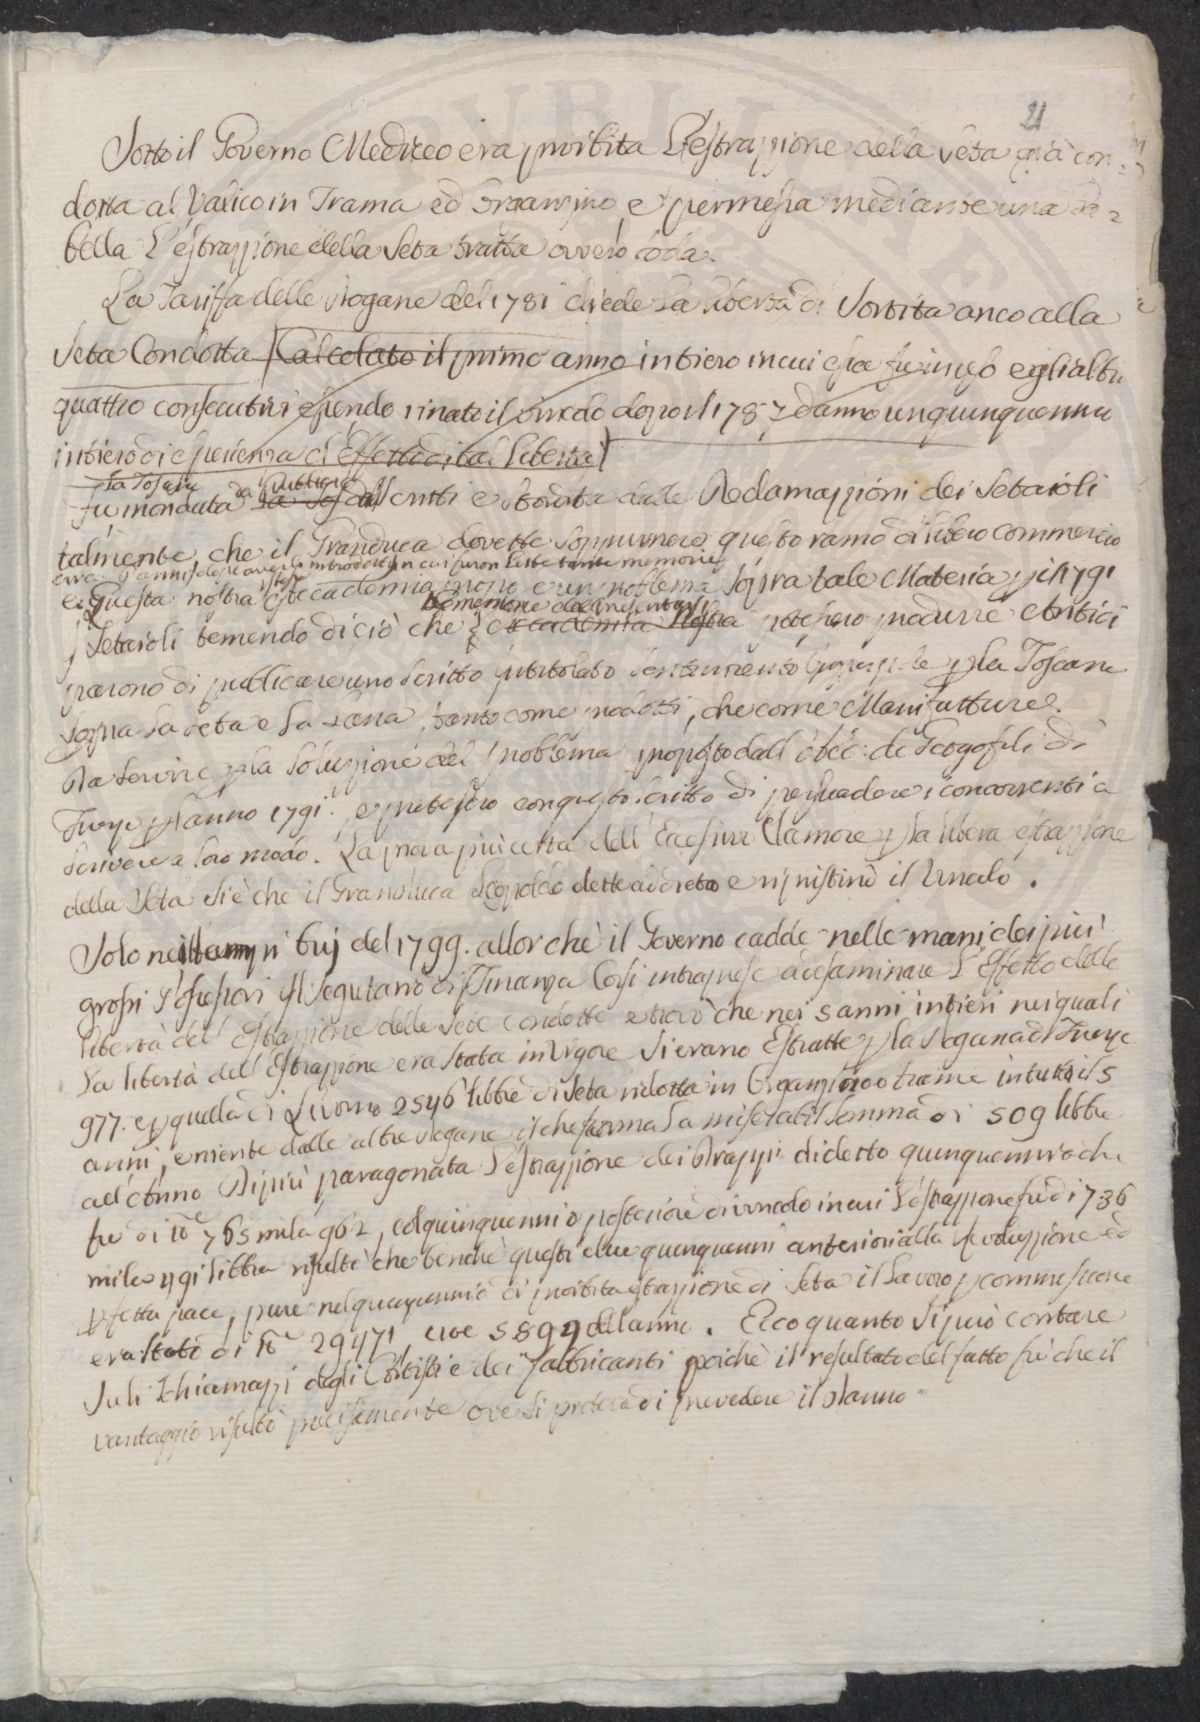 21
Sotto il Governo Mediceo era proibita l'estrazzione della seta già con-
dotta al Valico in Trama ed Organzino, e permessa mediante una Ga-
bella l'estrazzione della Seta tratta ovvero soda.
La Tariffa delle Dogane del 1781 diede la libertà di sortita anco alla
Seta Condotta Calcolato il primo anno intiero in cui essa fu in uso e gli altri
quattro consecutivi essendo rinato il vincolo dopo il 1787 danno un quinquennio
intiero di esperienza di Effetti di tal libertà
la Toscana Publici
fu inondata da la Scritti e stordita dalle Reclamazzioni dei Setaioli
talmente, che il Granduca dovette sopprimere questo ramo di libero commercio
in cui furon lette tante memorie
e Questa nostra Accademia propose un problema sopra tale Materia pel 1791
le memorie da presentarsi
I Setaioli temendo di ciò che l'Accademia stessa potessero produrre
di publicare uno scritto Intitolato per la Toscana
sopra la seta e la Lana, tanto come prodotti, che come Manifatture.
Da servire per la soluzione del problema proposto dall' Acc: de Georgofili di
Firenze per l'anno 1791. e pretesero con questo scritto di persuadere i concorrenti a
scrivere a loro modo. La prova più certa dell' clamore per la libera estrazione
della Seta si è che il Granduca Leopoldo dette addietro e ripristinò il Vincolo.
Solo nei tempi bui del 1799. allorchè il Governo cadde nelle mani dei più
grossi Possessori il Segretario di Finanza Corsi intraprese ad esaminare l'Effetto della
libertà dell' Estrazzione delle Sete condotte e trovò che nei 5 anni intieri nei quali
la libertà dell' Estrazzione era stata in Vigore si erano Estratte per la Dogana di Firenze
977. e per quella di Livorno 2546 libbre di seta ridotta in Organzino o trame in tutti i 5
anni, e niente dalle altre Dogane il che forma la miserabil somma di 509 libbre
all'Anno Di più paragonata l'estrazzione dei Drappi di detto quinquennio che
fu di 765 mila 962, col quinquennio posteriore di vincolo in cui l'estrazzione fu di 736
mila 491 libbra risultò che benchè questi due quinquenni anteriori alla Revoluzzione ed
perfetta pace, pure nel quinquennio di proibita estrazzione di Seta il lavoro per commissione
era stato di 29471, cioè 5894 all'anno. Ecco quanto si può contare
suli Schiamazzi degli Artisti e dei fabbricanti poichè il resultato del fatto fù che il
vantaggio risultò precisamente ove si pretese di prevedere il Danno